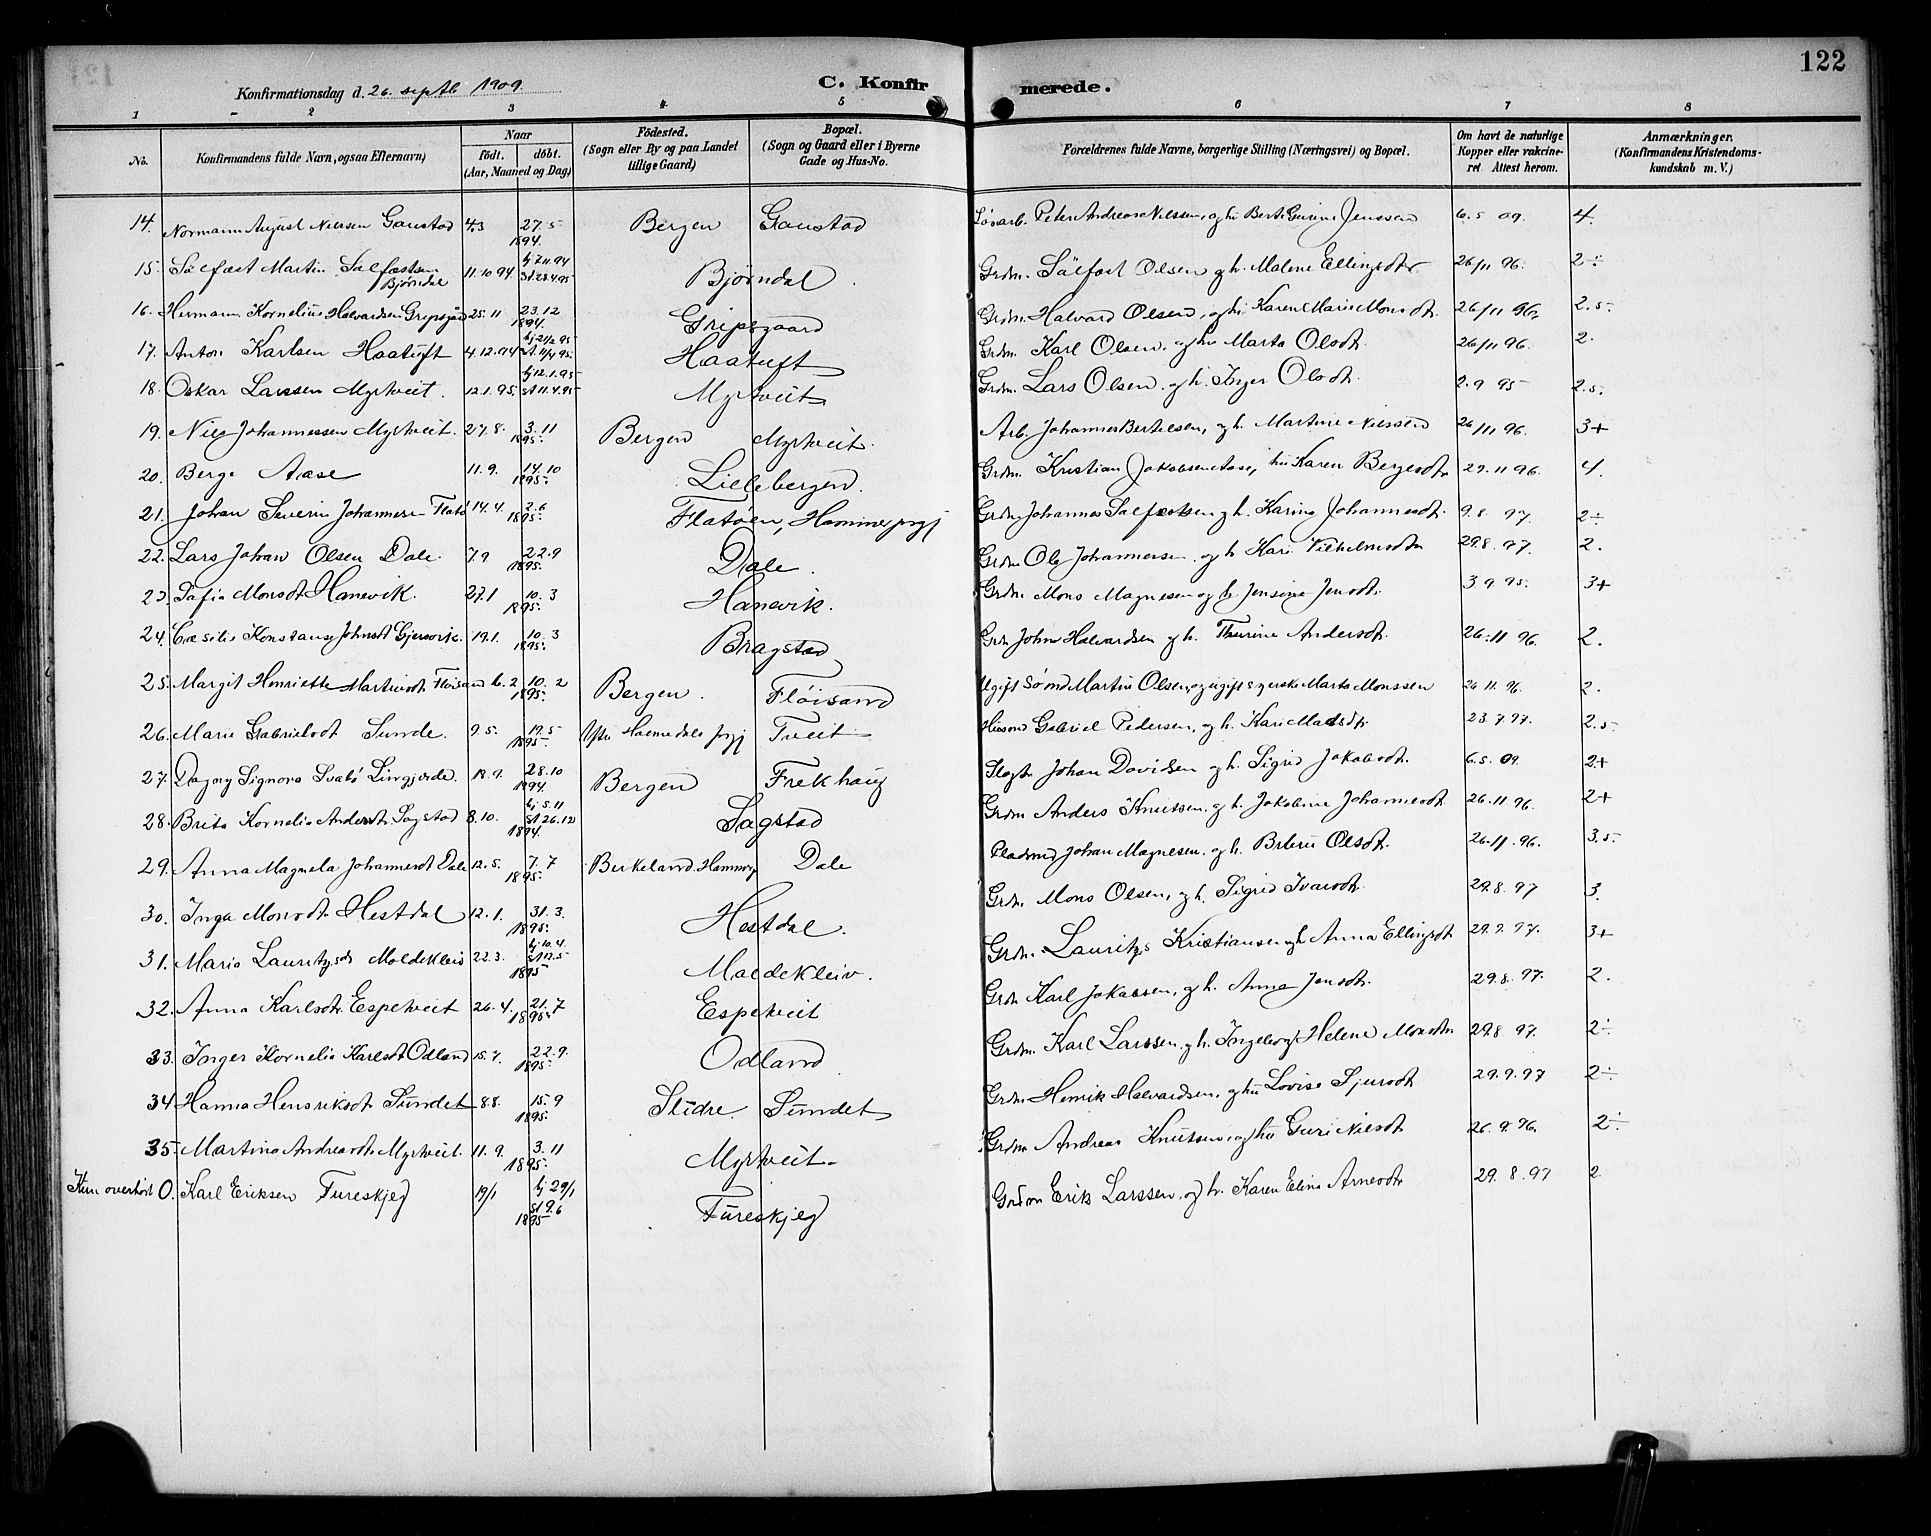 122
Konfirmationsdag d. 26. septb 1909.
C. Konfirmerede.
1 2 3 4 5 6 7 8
No.
Konfirmandens fulde Navn, ogsaa Efternavn)
Naar
født. døbt.
(Aar, Maaned og Dag)
Fødested.
(Sogn eller By og paa Landet
tillige Gaard)
Bopæl.
(Sogn og Gaard eller i Byerne
Gade og Hus-No.
Forældrenes fulde Navne, borgerlige Stilling (Næringsvei) og Bopæl.
Om havt de naturlige
Kopper eller vakcine-
ret Attest herom.
Anmærkninger.
(Konfirmandens Kristendoms-
kundskab m. V.)
14. Normann August Nielsen Gaustad 4.3 27.5 1894. Bergen Gaustad Løsarb. Peter Andreas Nielsen, og h. Berte Gurine Jenssen 6.5 09. 4.
15. Sälfæst Martin Salfæstsen Bjørndal 11.10 94 hj 7.11 94 st. 28.4.95 Bjørndal Grdm. Sälfast Olsen og h. Malene Ellingsdtr 26/11 96. 2÷
16. Hermann Kornelius Halvardsen Gripsgård 25.11 23.12 1894. Gripsgaard Grdm. Halvard Olsen, og h. Karen Marie Monsdt. 26/11 96. 2.5
17. Anton Karlsen Haatuft 4.12.94 hj 21/2 95 st. 11/4 95. Haatuft Grdm. Karl Olsen, og h. Marta Olsdt. 26/11 96. 2.
18. Oskar Larssen Myrtveit. 12.1.95. hj 12.1.95 st 11.4.95 Myrtveit Grdm. Lars Olsen og h. Inger Olsdt. 2.9 95 2.5.
19. Nils Johannessen Myrtveit. 27.8. 3.11 1895. Bergen Myrtveit. Arb. Johannes Bertelsen, og h. Martine Nilssen 26/11 96. 3+
20. Berge Aase 11.9. 14.10 1895. Lillebergen. Grdm. Kristian Jakobsen Aase, h. Karen Bergesdt. 27.11 96. 4.
21. Johan Severin Johannesen Flatø 14.4. 2.6 1895. Flatøen, Hammer prgj Grdm. Johannes Salfæstsen og h. Karine Johannesdt. 9.8. 97. 2÷
22. Lars Johan Olsen Dale. 7.9 22.9 1895. Dale. Grdm Ole Johannesen og h. Kari Vilhelmsdtr 29.8. 97. 2.
23. Safia Monsdt Hanevik. 27.1 10.3 1895. Hanevik. Grdm. Mons Magnesen og h. Jensine Jensdt. 3.9.95. 3+
24. Cæsilie Konstanse Johnsdt Gjervik. 19.1. 10.3 1895. Bragstad Grdm John Halvardsen og h. Thurine Andersdt. 26.11 96. 2.
25. Margit Henriette Martinsdt. Fløisand 6.2 10.2 1895. Bergen. Fløisand Ugift Sømd Martin Olsen, og ugift syerske Marta Monssen 26.11.96. 2.
26. Marie Gabrielsdt Sunde. 9.5. 19.5 1895 prgj Tveit Husmd Gabriel Pedersen, og h. Kari Madsdt. 23.7.97. 2.5
27. Dagny Signora Svabø Lingjerde. 18.9. 28.10 1894. Bergen Frekhaug Slagt. Johan Davidsen og h. Sigrid Jakobsdt. 6.5. 09. 2+
28. Brita Kornelia Andersdt. Sagstad 8.10. hj. 5.11 st 26.12 1894. Sagstad Grdm Anders Knutsen og h. Jakobine Johannesdt. 26.11 96. 2+
29. Anna Magnela Johannesdt Dale 12.5. 7.7 1895. Birkeland. Dale Pladsmd Johan Magnesen, og h. Olsdt. 26.11.96. 3.5
30. Inga Monsdt. Hestdal 12.1. 31.3. 1895. Hestdal. Grdm. Mons Olsen, og h. Sigrid Ivarsdt. 29.8.97 3.
31. Maria Lauritzsdt Moldekleiv 22.3. hj. 10.4. st 12.5 1895 Moldekleiv. Grdm. Lauritz Kristiansen og h Anna Ellingsdt 29.9.97. 3+
32. Anna Karlsdt. Espetveit 26.4. 21.7 1895. Espetveit Grdm Karl Jakobsen, og h. Anna Jensdt. 29.8.97. 2.
33. Inger Kornelia Karlsdt Odland 15.7. 22.9. 1895. Odland Grdm. Karl Larssen. og h. Ingeborg Helene Monsdtr 29.8 97. 2÷
34 Hanna Henriksdt. Sundet 8.8. 15.9 1895. Slidre. Sundet Grdm. Henrik Halvardsen, og h. Lovise Sjursdt 29.9.97 2÷
35 Martina Andreasdt. Myrtveit. 11.9. 3.11 1895. Myrtveit Grdm Andreas Knutsen og h. Guri Nilsdt 26.9.96. 2÷
Kun overhørt 0. Karl Eriksen Fureskjeg 19/1 hj 29/1 st 9.6 1895 Fureskjeg Grdm Erik Larssen, og h. Karen Elina Arnesdt 29.8.97 2